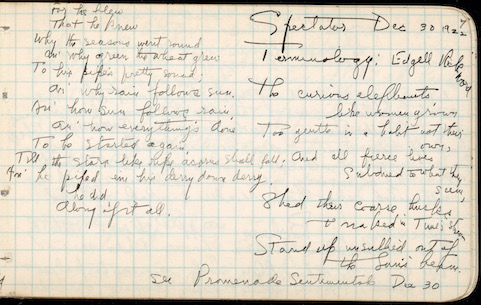 For he blew
That he knew
Why the seasons went round
An' why green the wheat grew
To his pipe's pretty sound;
An' why rain follows sun,
An' how sun follows rain,
An' how everything's done
To be started again,
Till the stars like ripe acorns shall fall.
An' he piped em his derry down derry,
he did
Along of it all.
Spectator Dec 30 1922
Terminology: Edgell
The curious elephants
like women grown
Too gentle in a light not their
own,
And all fierce lives
Subdued to what they
seem,
Shed their coarse husks
naked in Time's stream
Stand up unsullied out of
the Sun's beam.
See Promenade Sentimentale Dec 30